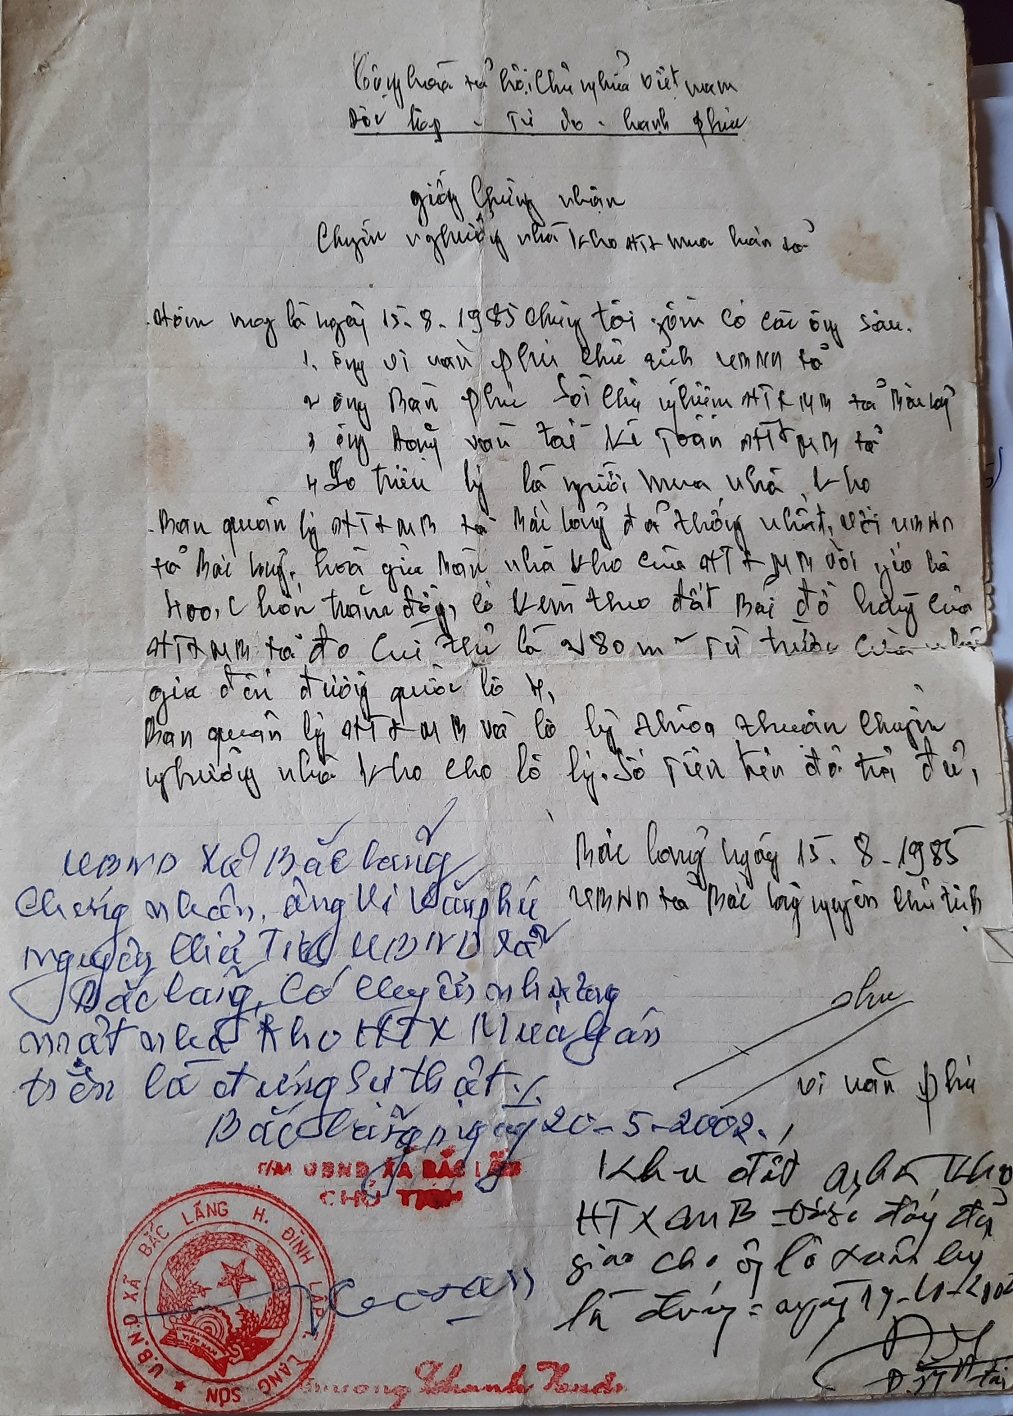 Cộng hoà xã hội chủ nghĩa việt nam
Độc lập - Tự do - hạnh phúc
giấy chứng nhận
Chuyển nghượng nhà kho HTX mua bán xã
Hôm nay là ngày 15.8.1985 chúng tôi gồm có các ông sau.
1. ông vi văn phú chủ tịch UBND xã
2 ông Bàn phúc Sồi chủ nghiệm HTXMB xã Bắc lãng
3 ông văn tài kế toán HTXMB xã
4 Lô triều lý là người mua nhà kho
Ban quản lý HTXMB xã Bắc lãng đã thống nhất với UBND
xã Bắc lãng. hoá giá bán nhà kho của HTXMB với giá là
400, bốn trăm đồng, kèm theo đất Bãi đỗ hàng của
HTXMB xã đo cụ thể là 280m2 Từ trước cửa nhà
gia đến đường quốc lộ 4,
Ban quản lý HTXMB và lô lý thỏa thuận chuyển
nghượng nhà kho cho lô lý. Số Tiền trên đã trả đủ,
Bắc lãng ngày 15.8.1985
UBND xã Bắc lãng nguyên chủ tịch
phu
vi văn phú
UBND xã Bắc lãng
chứng nhận, ông Vi Văn phú
nguyên chủ Tịch UBND xã
Bắc lãng, có chuyển nhượng
một nhà kho HTX Mua bán
trên là đúng sự thật ./.
Bắc lãng ngày 20-5-2002.
T/M UBND XÃ BẮC LÃNG
CHỦ TỊCH
U.B.N.D XÃ BẮC LÃNG H. ĐÌNH LẬP T. LẠNG SƠN
VIỆT NAM
Khu đất nhà kho
HTXMB được đầy đủ
giao cho ông lô xuân lý
là đúng = ngày